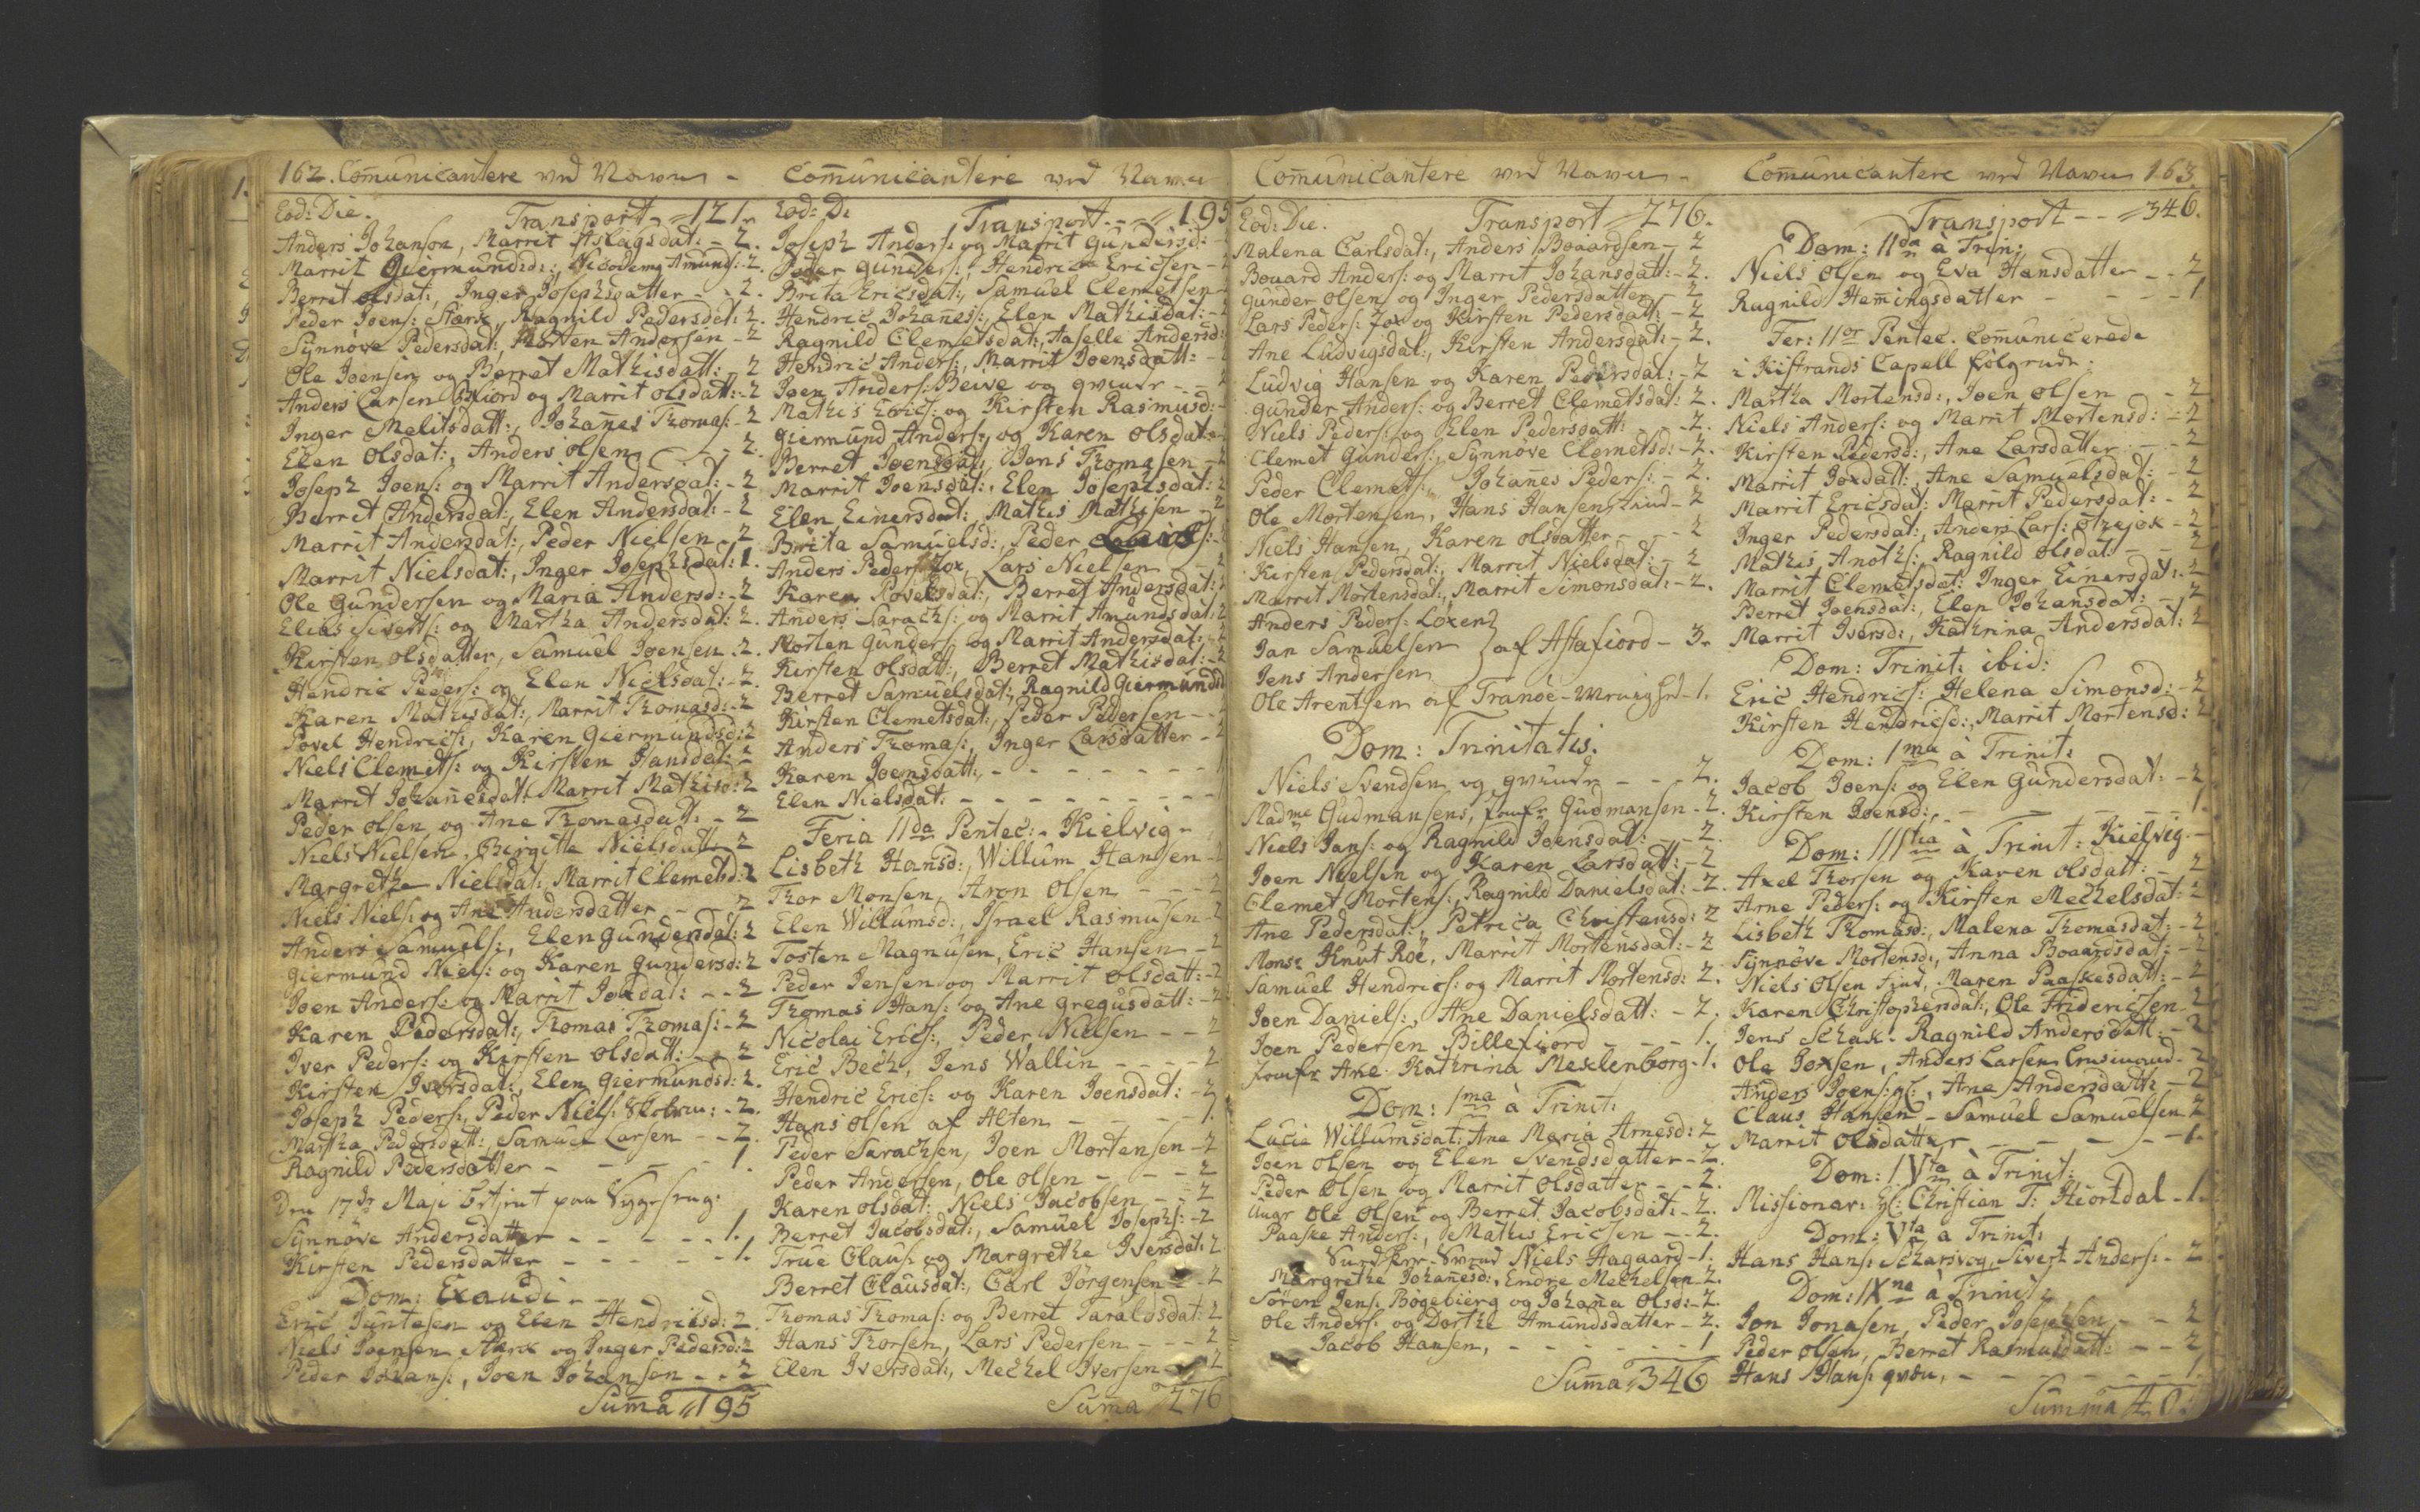 162. Com̄unicantere ved Navn -
Eod: Die. Transport - 121.
Anders Johanson, Marrit Aslagsdat: - 2.
Marrit Giermundsd:, Nicodemg Amunds: 2.
Berret olsdat:, Inger Josephsdatter - - 2.
Peder Joens: Stærk, Ragnild Pedersdat: 2.
Synnøve Pedersdat:, Morten Andersen - 2
Ole Joensen og Berret Mathisdatt: - 2
Anders Larsen og Marrit olsdatt: - 2
Inger Melitsdatt:, Johan̄es Thomas: - 2
Elen Olsdat:, Anders olsen - - 2.
Joseph Joens: og Marrit Andersdat: - 2
Berret Andersdat:, Elen Andersdat: - 2
Marrit Andersdat:, Peder Nielsen - 2
Marrit Nielsdat:, Inger Josephsdat: 1.
Ole Gundersen og Maria Andersd: - 2
Elias Siverts: og Martha Andersdat: 2.
Kirsten olsdatter, Samuel Joensen - 2.
Hendric Peders: og Elen Nielsdat: - 2.
Karen Mathisdat:, Marrit Thomasd: - 2
Povel Hendrics:, Karen Giermundsd: 2
Niels Clemets: og Kirsten Hansdat: -
Marrit Johan̄esdat: Marrit Mathisd: 2
Peder olsen og Ane Thomasdatt: - 2
Niels Nielsen, Birgitta Nielsdatt - 2
Margrethe Nielsdat: Marrit Clemetsd: 2
Niels Niels: og Ane Andersdatter - - 2
Anders Samuels:, Elen Gundersdat: 2
Giermund Niels: og Karen Gundersd: 2
Joen Anders: og Marrit Joxdat: - - 2
Karen Pedersdat:, Thomas Thomas: - 2
Iver Peders: og Kirsten olsdatt: - - 2
Kirsten Iversdat:, Elen Giermundsd: 2.
Joseph Peders:, Peder Niels: - 2.
Martha Pedersdatt: Samuel Larsen - - 2.
Ragnild Pedersdatter - - - - 1.
Den 17de Maji paa
Synnøve Andersdatter - - - - - 1.
Kirsten Pedersdatter - - - - - 1.
Dom: Exaudi -
Eric og Elen Hendricsd: 2.
Niels Joensen Stærk og Inger Pedersd: 2
Peder Johans:, Joen Johansen - - 2
Sum̄a 195
Com̄unicantere ved Navn
Eod: D: Transport - - 195
Joseph Anders: og Marrit Gundersd: -
Peder Gunders:, Hendric Ericsen - 2
Brita Ericsdat:, Samuel Clemetsen -
Hendric Johan̄es:, Elen Mathisdat: - 2
Ragnild Clemetsdat:, Aaselle Andersd:
Hendric Anders:, Marrit Joensdatt: -
Joen Anders: Beive og qvinde - - 2
Mathis Erics: og Kirsten Rasmusd: -
Giermund Anders: og Karen olsdat:
Berret Joensdat:, Jens Thomasen - 2
Marrit Joensdat:, Elen Josephsdat: 2
Elen Einersdat:, Mathis Mathisen - 2
Brita Samuelsd:, Peder
Anders Peders: Jox, Lars Nielsen - 2
Karen Povelsdat:, Berret Andersdat: 2
Anders Sarachs: og Marrit Amundsdat: 2
Morten Gunders: og Marrit Andersdat: - 2
Kirsten olsdatt:, Berret Mathisdat: - 2
Berret Samuelsdat:, Ragnild Giermundsd
Kirsten Clemetsdat:, Peder Pedersen - - 2
Anders Thomas:, Inger Larsdatter - 2
Karen Joensdatt: - - - - - - - 1
Elen Nielsdat: - - - - - - - -
Feria IIda Pentec: - Kielvig -
Lisbeth Hansd:, Willum Hansen - 2
Thor Monsen, Aron Olsen - - - 2
Elen Willumsd:, Israel Rasmusen - 2
Tosten Magnusen, Eric Hansen - 2
Peder Jensen og Marrit olsdatt: - 2
Thomas Hans: og Ane Gregusdatt: - 2
Nicolai Erics:, Peder Nielsen - - 2
Eric Bech, Jens Wallin - - - - 2
Hendric Erics: og Karen Joensdat: - 2
Hans olsen af Alten - - - - 1.
Peder Sarachsen, Joen Mortensen - 2
Peder Andersen, Ole olsen - - - 2
Karen olsdat:, Niels Jacobsen - - 2
Berret Jacobsdat:, Samuel Josephs: - 2
True Claus: og Margrethe Iversdat: 2
Berret Clausdat:, Carl Jörgensen - 2
Thomas Thomas: og Berret Taraldsdat: 2
Hans Thorsen, Lars Pedersen - - - 2
Elen Iversdat:, Mechel Iversen - 2
Sum̄a 276
Com̄unicantere ved Navn -
Eod: Die. Transport 276.
Malena Carlsdat:, Anders Boaardsen - 2
Bouard Anders: og Marrit Johansdatt: - 2.
Gunder olsen og Inger Pedersdatter - 2
Lars Peders: Jox og Kirsten Pedersdat: - 2
Ane Ludvigsdat:, Kirsten Andersdat: - 2.
Ludvig Hansen og Karen Pedersdat: - 2
Gunder Anders: og Berret Clemetsdat: 2.
Niels Peders: og Elen Pedersdatt: - - 2.
Clemet Gunders:, Synnøve Clemetsd: - 2.
Peder Clemets:, Johan̄es Peders: - 2.
Ole Mortensen, Hans Hansen Lind - 2
Niels Hansen, Karen olsdatter - - - 2
Kirsten Pedersdat:, Marrit Nielsdat: - 2
Marrit Mortensdat:, Marrit Simonsdat: - 2.
Anders Peders: Loxen
Jan Samuelsen } af Astafiord - 3.
Jens Andersen
Ole Arentsen af Tranöe - 1.
Dom: Trinitatis.
Niels Svendsen og qvinde - - - 2.
Madme Gudmansens, Jomfr Gudmansen - 2.
Niels Jans: og Ragnild Joensdat: - - 2.
Joen Nielsen og Karen Larsdatt: - 2
Clemet Mortens:, Ragnild Danielsdat: - 2.
Ane Pedersdat:, Petrica Christensd: 2
Monsr Knut Röe, Marrit Mortensdat: - 2
Samuel Hendrics: og Marrit Mortensd: 2.
Joen Daniels:, Ane Danielsdatt: - 2.
Joen Pedersen Billefiord - - - 1.
Jomfr Ane Kathrina Mecklenborg - 1.
Dom: Ima à Trinit:
Lucie Willumsdat: Ane Maria Arnesd: 2
Joen olsen og Elen Svendsdatter - 2.
Peder Olsen og Marrit olsdatter - - 2.
Ole Olsen og Berret Jacobsdat: - 2.
Paaske Anders:, Mathis Ericsen - - 2.
Niels Aagaard - 1.
Margrethe Johan̄esd:, Endre Mechelsen - 2.
Sören Jens: Bögebierg og Johan̄a Olsd: - 2.
Ole Anders: og Dorthe Amundsdatter - 2.
Jacob Hansen, - - - - - - - 1
Sum̄a 346
Com̄unicantere ved Navn 163
Transport - - 346.
Dom: IIda à Trin:
Niels Olsen og Eva Hansdatter - - 2
Ragnild Hem̄ingsdatter - - - - 1.
Fer: IIor Pentec. Com̄unicerede
i Kistrands Capell følgende:
Martha Mortensd:, Joen olsen - 2
Niels Anders: og Marrit Mortensd: - 2
Kirsten Pedersd:, Ane Larsdatter - - 2
Marrit Joxdatt:, Ane Samuelsdat: - 2
Marrit Ericsdat: Marrit Pedersdat: - 2
Inger Pedersdat:, Anders Lars: Otzejok - 2
Mathis Anoths: Ragnild olsdat: - - 2
Marrit Clemetsdat: Inger Einersdat: - 2
Berret Joensdat:, Elen Johansdat: - 2
Marrit Iversd:, Kathrina Andersdat: 2
Dom: Trinit: ibid:
Eric Hendrics: Helena Simonsd: - 2
Kirsten Hendricsd:, Marrit Mortensd: 2
Dom: Ima à Trinit:
Jacob Joens: og Elen Gundersdat: - 2
Kirsten Joensd:, - - - - - 1.
Dom: IIItia à Trinit: Kielvig -
Axel Thorsen og Karen olsdatt: - 2
Arne Peders: og Kirsten Mechelsdat: 2
Lisbeth Thomasd:, Malena Thomasdat: - 2
Synnøve Mortensd:, Anna Boaardsdat: - 2
Niels Olsen Find, Maren Paaskesdatt: - 2
Karen Christophersdat:, Ole Fridericsen 2
Jens Schak. Ragnild Andersdatt: - 2
Ole Joxsen, Anders Larsen - 2
Anders Joens:, Ane Andersdatt: - 2
Claus Hansen - Samuel Samuelsen 2
Marrit Olsdatter - - - - - 1.
Dom: IVta à Trinit:
Missionar: Hr: Christian T: Hiortdal - 1.
Dom: Vta a Trinit:
Hans Hans: og Sivert Anders: - 2
Dom: IXna à Trinit:
Jon Jonasen, Peder Josephsen, - - 2
Peder olsen, Berret Rasmusdatt: - - 2
Hans Hans: qvæn, - - - - - 1
Sum̄ma